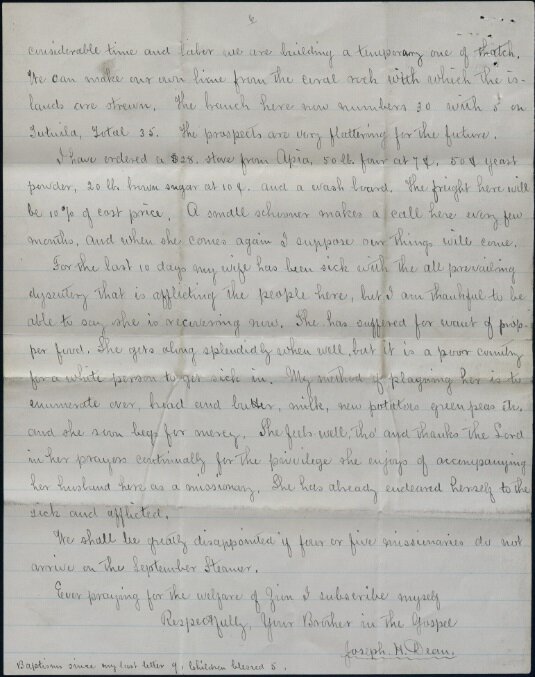 considerable time and labor we are building a temporary one of thatch.
We can make our own lime from the coral rock with which the is-
lands are strewn. The branch here now numbers 30 with 5 on
Tutuila, Total 35. The prospects are very flattering for the future.
I have ordered a $28. stove from Apia, 50 lb. flour at 7¢, 50¢ yeast
powder, 20 lb. brown sugar at 10¢. and a wash board. The freight here will
be 10% of cost price. A small schooner makes a call here every few
months, and when she comes again I suppose our things will come.
For the last 10 days my wife has been sick with the all prevailing
dysentery that is afflicting the people here, but I am thankful to be
able to say she is recovering now. She has suffered for want of prop-
per food. She gets along splendidly when well, but it is a poor country
for a white person to get sick in. My method of plaguing her is to
enumerate over, bread and butter, milk, new potatoes green peas etc.
and she soon begs for mercy. She feels well, tho' and thanks the Lord
in her prayers continually for the privilege she enjoys of accompanying
her husband here as a missionary. She has already endeared herself to the
sick and afflicted.
We shall be greatly disappointed if four or five missionaries do not
arrive on the September Steamer.
Ever praying for the welfare of Zion I subscribe myself
Respectfully, Your Brother in the Gospel
Joseph H. Dean.
Baptisms since my last letter 9, Children blessed 5.